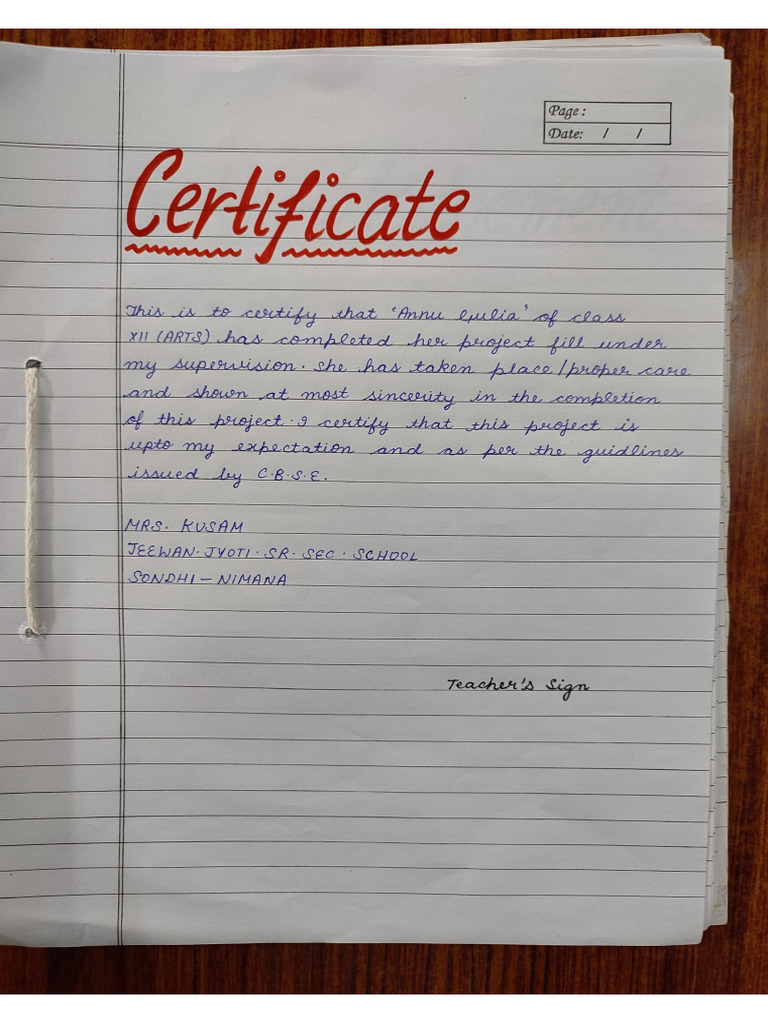 Page :
Date: / /
Certificate
This is to certify that 'Annu Gulia' of class
XII (ARTS) has completed her project fill under
my supervision. She has taken place/proper care
and shown at most sincerity in the completion
of this project. I certify that this project is
upto my expectation and as per the guidlines
issued by C.B.S.E.
MRS. KUSAM
JEEWAN.JYOTI.SR.SEC.SCHOOL
SONDHI-NIMANA
Teacher's Sign